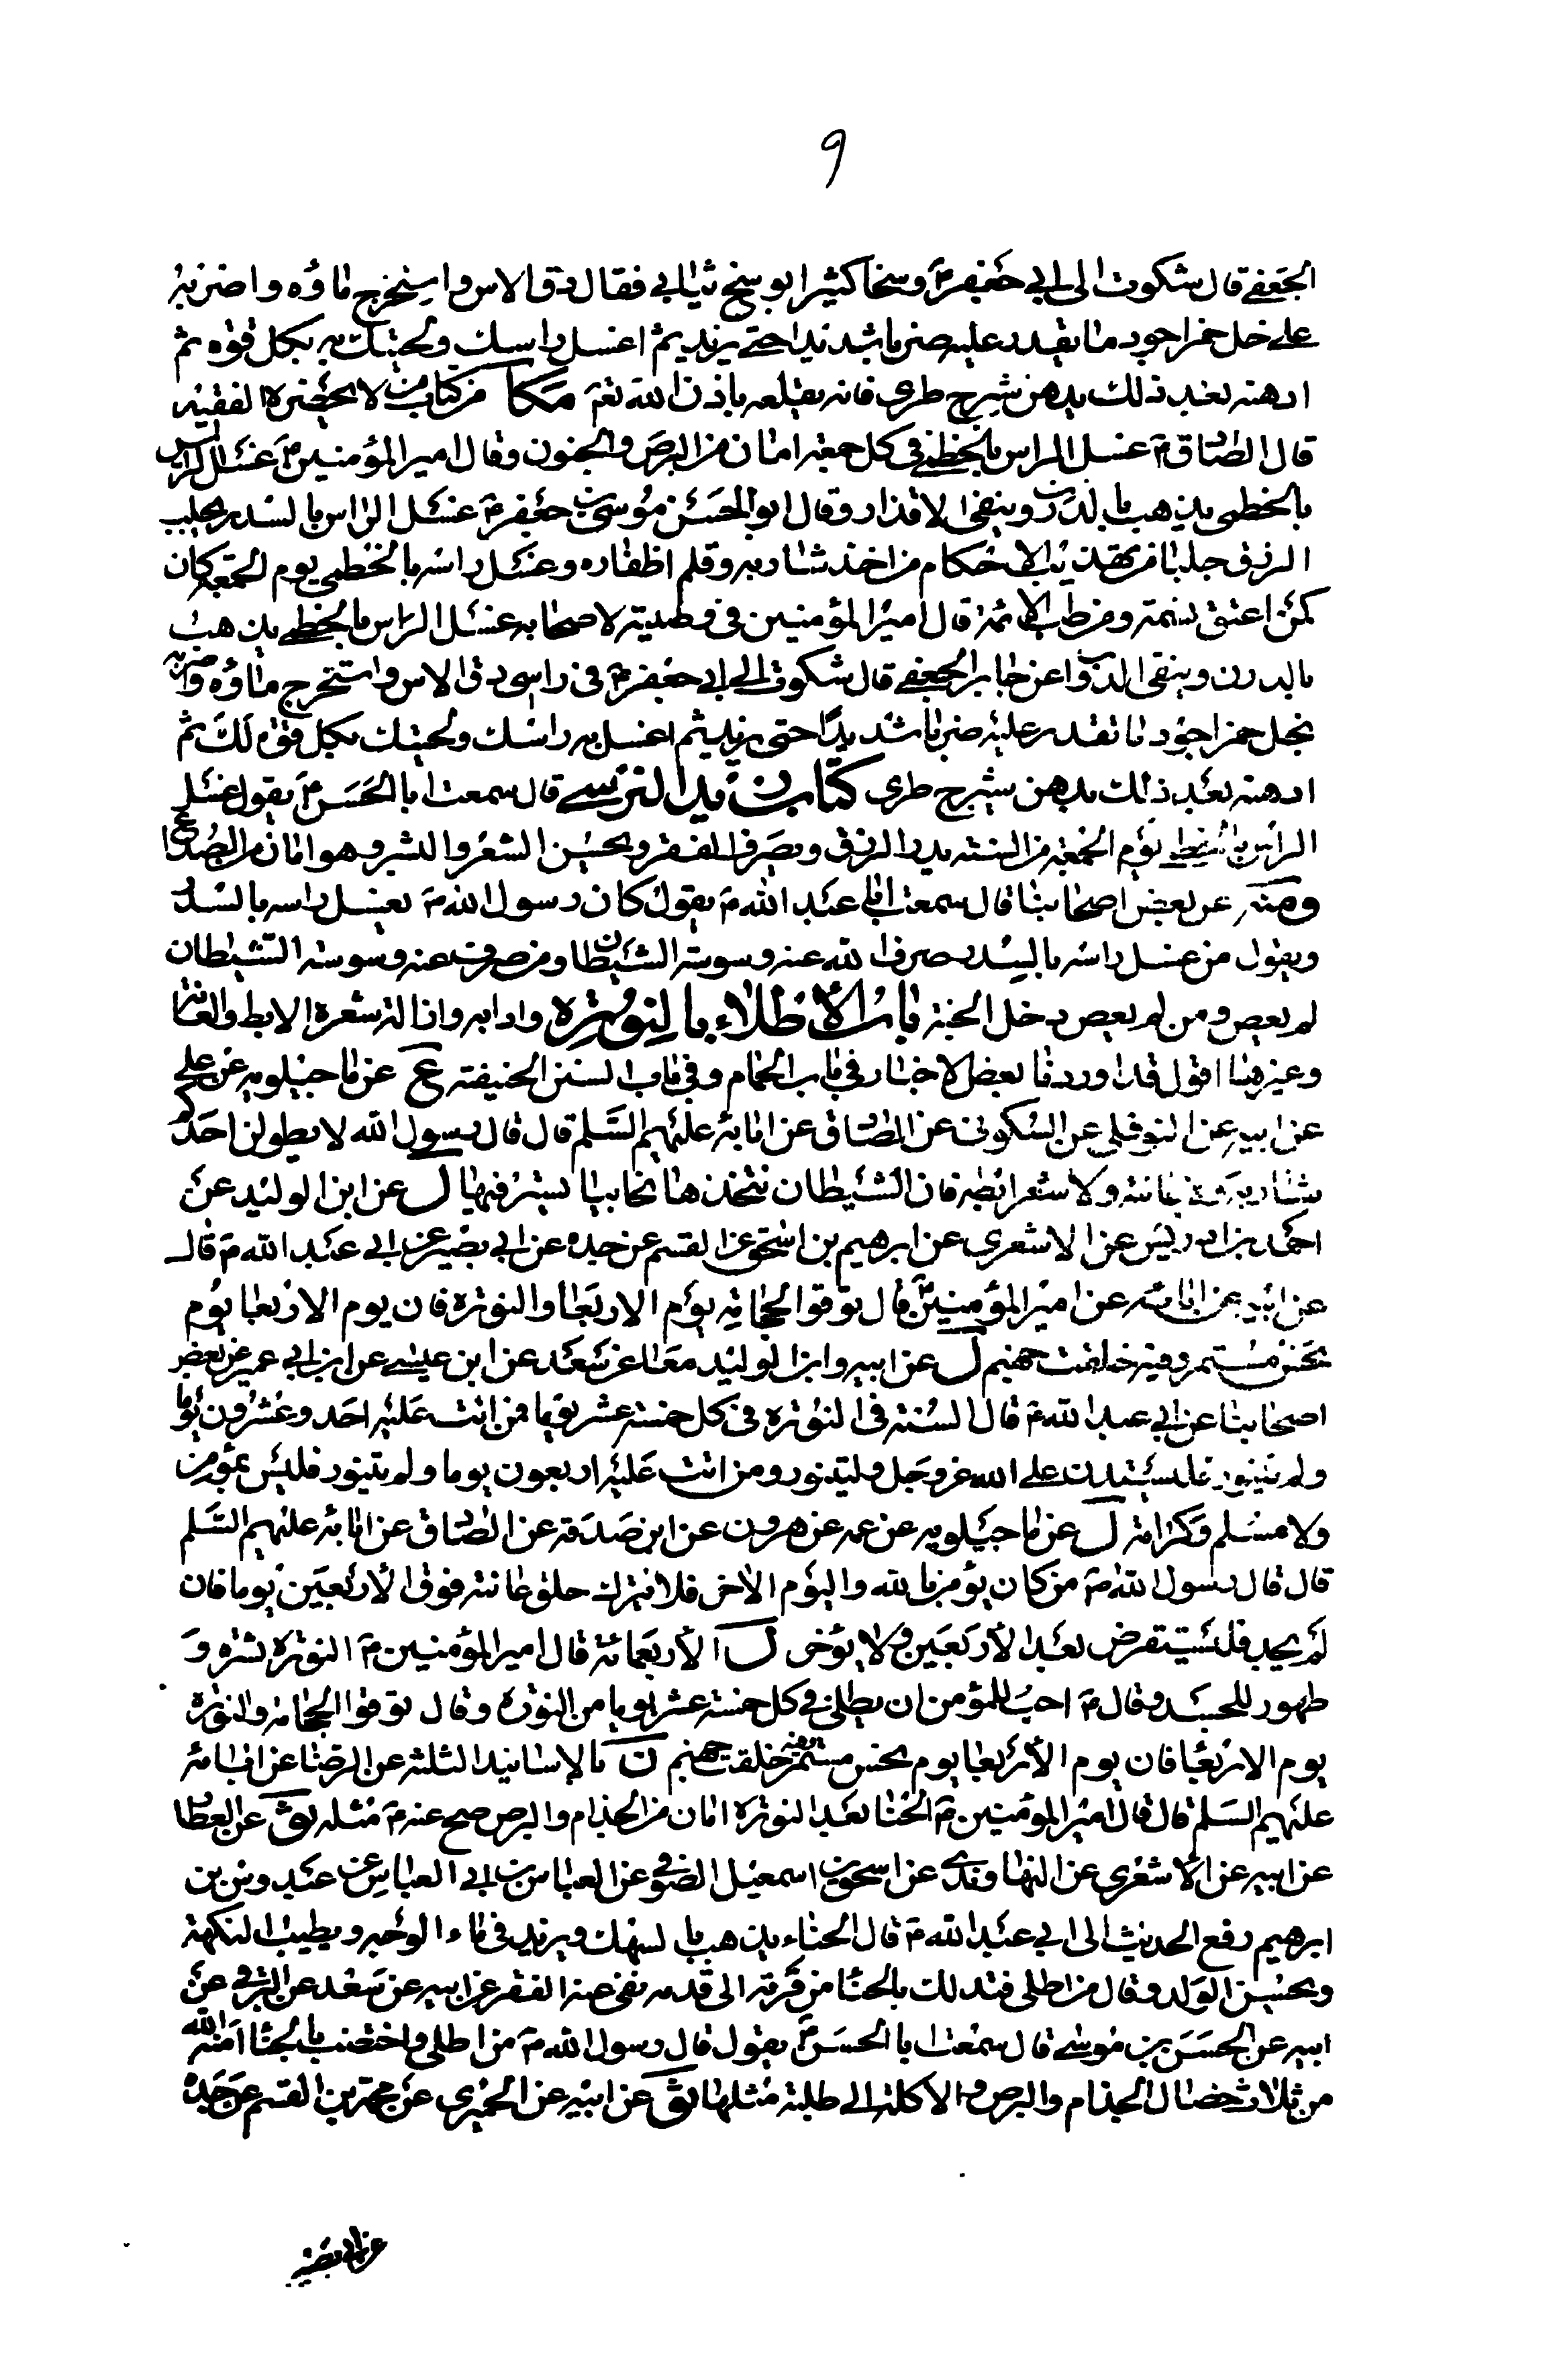 ٩
الجعفي قال شكوت الى ابي جعفر ع وسخا كثيرا يوسخ ثيابي فقال دق الاس واستخرج ماؤه واضربه
على خل خمر اجود ما تقدر عليه ضربا شديدا حتى يزبد ثم اغسل راسك ولحيتك به بكل قوة ثم
ادهنه بعد ذلك بدهن شيرج طري فانه يقلعه باذن الله تع مكا من كتاب من لا يحضره الفقيه
قال الصادق ع غسل الراس بالخطمي في كل جمعة امان من البرص والجنون وقال امير المؤمنين ع غسل الراس
بالخطمى يذهب بالدرن وينفى الاقذار وقال ابو الحسن موسى بن جعفر ع غسل الراس بالسدر يجلب
الرزق جلبا من تهذيب الاحكام من اخذ شاربه وقلم اظفاره وغسل راسه بالخطمى يوم الجمعة كان
كمن اعتق نسمة ومن طب الائمة قال امير المؤمنين في وصيته لاصحابه غسل الراس بالخطمي يذهب
بالدرن وينقى الدواب عن جابر الجعفي قال شكوت الى ابي جعفر ع في راسى دق الاس واستخرج ماؤه واضربه
بخل خمر اجود ما تقدر عليه ضربا شديدا حتى يزبد ثم اغسل به راسك ولحيتك بكل قوة لك ثم
ادهنه بعد ذلك بدهن شيرج طرى كتاب زيد النرسي قال سمعت ابا الحسن ع يقول غسل
الراس بالخطمي يوم الجمعة من السنة يدر الرزق ويصرف الفقر ويحسن الشعر والبشر وهو امان من الصداع
ومنه عن بعض اصحابنا قال سمعت ابا عبد الله ع يقول كان رسول الله ص يغسل راسه بالسدر
ويقول من غسل راسه بالسدر صرف الله عنه وسوسة الشيطان ومن صرفت عنه وسوسة الشيطان
لم يعص ومن لم يعص دخل الجنة باب الاطلاء بالنورة وادابه وازالة شعرة الابط والعانة
وغيرهما اقول قد اوردنا بعض الاخبار في باب الحمام وفي باب السنن الحنيفة ع عن ماجيلويه عن علي
عن ابيه عن النوفلي عن السكونى عن الصادق عن ابائه عليهم السلم قال قال رسول الله لا يطولن احدكم
شاربه ولا عانته ولا شعر ابطه فان الشيطان يتخذها مخابيا يستتر فيها ل عن ابن الوليد عن
احمد بن ادريس عن الاشعري عن ابرهيم بن اسحق عن القسم عن جده عن ابي بصير عن ابي عبد الله ع قال
عن ابيه عن ابائه عن امير المؤمنين ع قال توقوا الحجامة يوم الاربعا والنورة فان يوم الاربعا يوم
نحس مستمر وفيه خلقت جهنم ل عن ابيه وابن الوليد معا عن سعد عن ابن عيسى عن ابن ابي عمير عن بعض
اصحابنا عن ابي عبد الله ع قال السنة في النورة في كل خمسة عشر يوما فمن اتت عليه احد وعشرون يوما
ولم يتنور فليستدن على الله عز وجل وليتنور ومن اتت عليه اربعون يوما ولم يتنور فليس بمؤمن
ولا مسلم ولا كرامة ل عن ماجيلويه عن عمه عن هرون عن ابن صدقة عن الصادق عن ابائه عليهم السلم
قال قال رسول الله ص من كان يؤمن بالله واليوم الاخر فلا يترك حلق عانته فوق الاربعين يوما فان
لم يجد فليستقرض بعد الاربعين ولا يؤخر ل الاربعمائة قال امير المؤمنين ع النورة نشرة و
طهور للجسد وقال ع احب للمؤمن ان يطلى في كل خمسة عشر يوما من النورة وقال توقوا الحجامة والنورة
يوم الاربعا فان يوم الاربعا يوم نحس مستمر وفيه خلقت جهنم ن بالاسانيد الثلثة عن الرضا عن ابائه
عليهم السلم قال قال امير المؤمنين ع الحنا بعد النورة امان من الجذام والبرص صح عنه ع مثله ثو عن العطار
عن ابيه عن الاشعري عن النهاوندي عن اسحق بن اسمعيل الصوفي عن العباس بن ابي العباس عن عبدوس بن
ابرهيم رفع الحديث الى ابي عبد الله ع قال الحناء يذهب بالسهك ويزيد في ماء الوجه ويطيب النكهة
ويحسن الولد وقال من اطلى فتدلك بالحنا من قرنه الى قدمه نفى عنه الفقر عن ابيه عن سعد عن البرقي عن
ابيه عن الحسن بن موسى قال سمعت ابا الحسن ع يقول قال رسول الله ص من اطلى واختضب بالحنا امنه الله
من ثلاث خصال الجذام والبرص والاكلة الى طلية مثلها ثو عن ابيه عن الحميري عن محمد بن القسم عن جده
عن ابي بصير